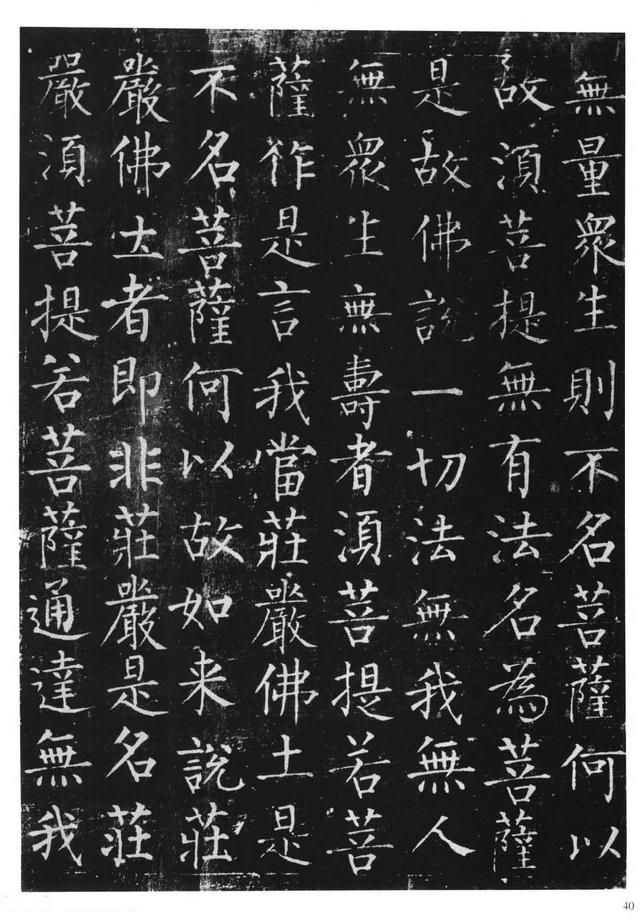 無量衆生則不名菩薩何以
故須菩提無有法名為菩薩
是故佛說一切法無我無人
無衆生無壽者須菩提若菩
薩作是言我當莊嚴佛土是
不名菩薩何以故如来說莊
嚴佛土者即非莊嚴是名莊
嚴須菩提若菩薩通達無我
40